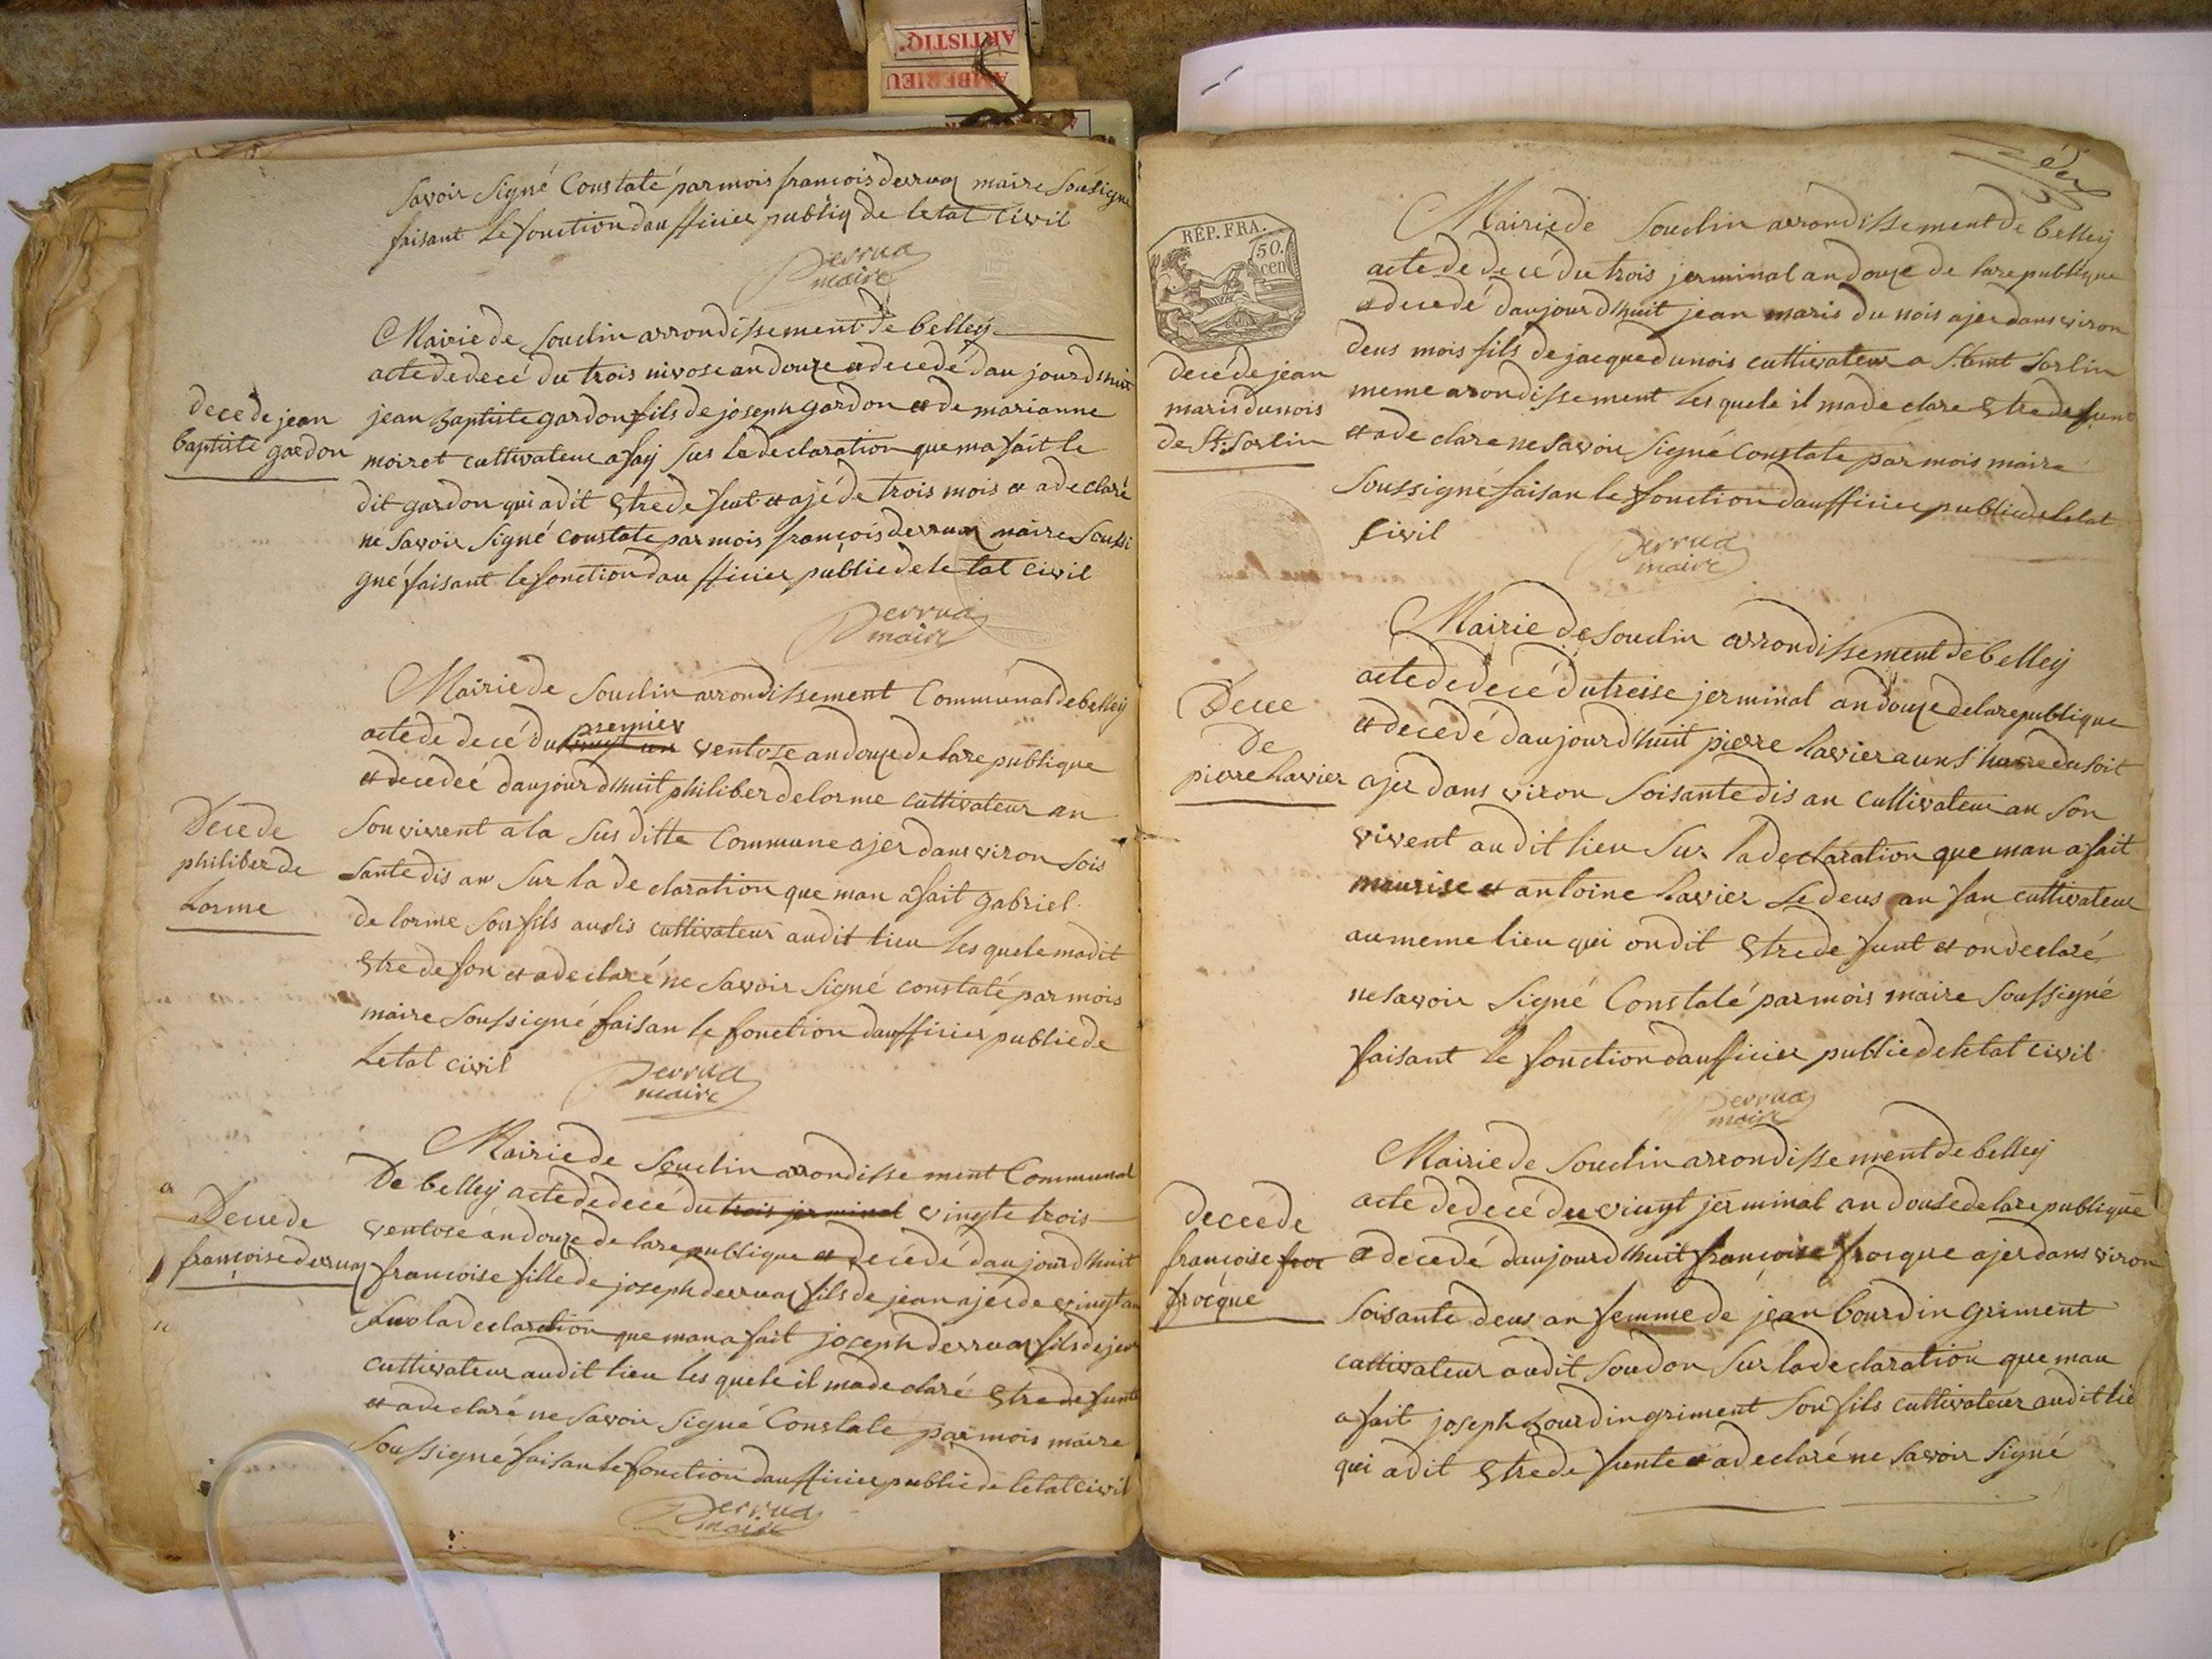 ARTISTIQ.
AMBERIEU
Savoir Signé Constaté par mois francois derruaz maire Sousigne
faisant le fonction daufficier publiq de letat Civil
Derruaz
maire
Mairie de Souclin arrondissement de belley
acte de decé du trois nivose an douze et decedé daujourdhuit
dece de jean
baptiste gardon
jean Baptiste gardon fils de joseph gardon et de marianne
moiret cultivateur a fay sus la declaration que ma fait le
dit gardon qui a dit Etre defunt et ajé de trois mois et a declaré
ne Savoir Signé constate par mois françois derruaz maire Soussi
gné faisant le fonction daufficier publie de letat civil
Derruaz
maire
Mairie de Souclin arrondissement Communal de belley
premier
acte de decé du ventose an douze de la republique
et decedeé daujourdhuit philiber delorme cultivateur an
Decede
philiber de
Lorme
Son vivent a la Sus ditte Commune ajer danviron Sois
sante dis an Sur la declaration que man a fait gabriel
de lorme Son fils audis cultivateur audit lieu les quele madit
Etre defon et a declaré ne Savoir Signé constaté par mois
maire Soussigné faisan le fonction daufficier publie de
Letat civil
Derruaz
maire
Mairie de Souclin arondissement Communal
De belley acte de decé du trois jerminal vingte trois
Decede
françoise derruaz
ventose an douze de la republique et decedé daujourdhuit
francoise fille de joseph derruaz fils de jean ajer de vingt an
Sur la declaration que man a fait joseph derruaz fils de jean
cultivateur audit lieu les quele il madeclaré Etre defunte
et adeclaré ne Savoir Signé Constate par mois maire
Soussigné faisan le fonction daufficier publie de letat civil
Derruaz
maire
REP. FRA.
50.
cen
Mairie de Souclin arrondissement de belley
acte de decé du trois jerminal an douze de la republique
et decedé daujourdhuit jean maris dunois ajer danviron
Decé de jean
maris dunois
de St. Sorlin
deus mois fils de jacque dunois cultivateur a Saint Sorlin
meme arondissement les quele il madeclare Etre defunt
et adeclare ne Savoir Signé Constate par mois maire
Soussigné faisan le fonction daufficier publie de letat
Civil
Derruaz
maire
Mairie de Souclin arrondissement de belley
acte de decé du treisse jerminal an douze de la republique
Decee
De
pierre Lavier
et decedé daujourdhuit pierre Lavier a uns hure du soit
ajer dans viron Soisante dis an cultivateur an Son
vivent audit lieu Sur la declaration que man a fait
maurise et antoine Lavier Le deus anfan cultivateur
au meme lieu qui on dit Etre defunt et on declaré
ne savoir Signé Constaté par mois maire Soussigné
faisant le fonction daufficier publie de letat civil
Derruaz
maire
Mairie de Souclin arrondissement de belley
acte de decé du vingt jerminal an douse de la republique
Decée de
françoise froc
frocque
et decedé daujourdhuit françoise frocque ajer dans viron
Soisante deus an femme de jean bourdin griment
cultivateur audit Soudon Sur la declaration que man
a fait joseph bourdin griment Son fils cultivateur audit lie
qui a dit Etre defunte et adeclaré ne Savoir Signé